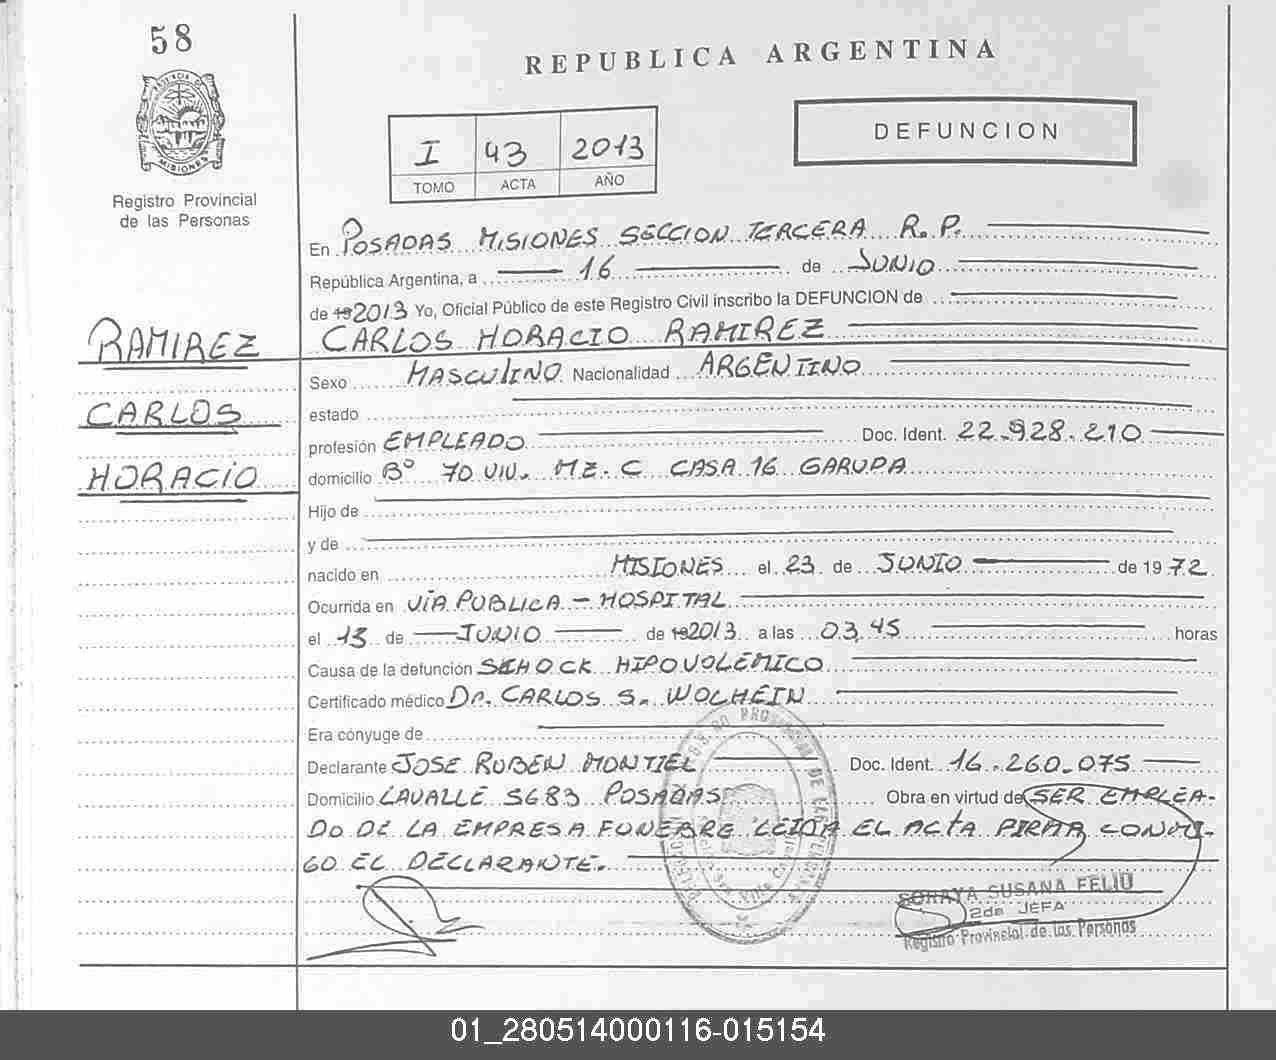 58
REPUBLICA ARGENTINA
DEFUNCION
I 43 2013
TOMO ACTA AÑO
MISIONES
Registro Provincial
de las Personas
En POSADAS MISIONES SECCION TERCERA R.P.
República Argentina, a 16 de JUNIO
de 192013 Yo, Oficial Público de este Registro Civil inscribo la DEFUNCION de
RAMIREZ
CARLOS
HORACIO
CARLOS HORACIO RAMIREZ
Sexo MASCULINO Nacionalidad ARGENTINO
estado
profesión EMPLEADO Doc. Ident. 22.928.210
domicilio Bº 70 VIV. MZ. C CASA 16 GARUPA
Hijo de
y de
nacido en MISIONES el 23 de JUNIO de 1972
Ocurrida en VIA PUBLICA - HOSPITAL
el 13 de JUNIO de 192013 a las 03,45 horas
Causa de la defunción SCHOCK HIPOVOLEMICO
Certificado médico Dr. CARLOS S. WOLHEIN
Era cónyuge de
Declarante JOSE RUBEN MONTIEL Doc. Ident. 16.260.075
Domicilio LAVALLE 5683 POSADAS Obra en virtud de SER EMPLEA-
DO DE LA EMPRESA FUNEBRE LEIDA EL ACTA FIRMA CONMI-
GO EL DECLARANTE.
SORAYA SUSANA FELIU
2da JEFA
Registro Provincial de las Personas
01_280514000116-015154